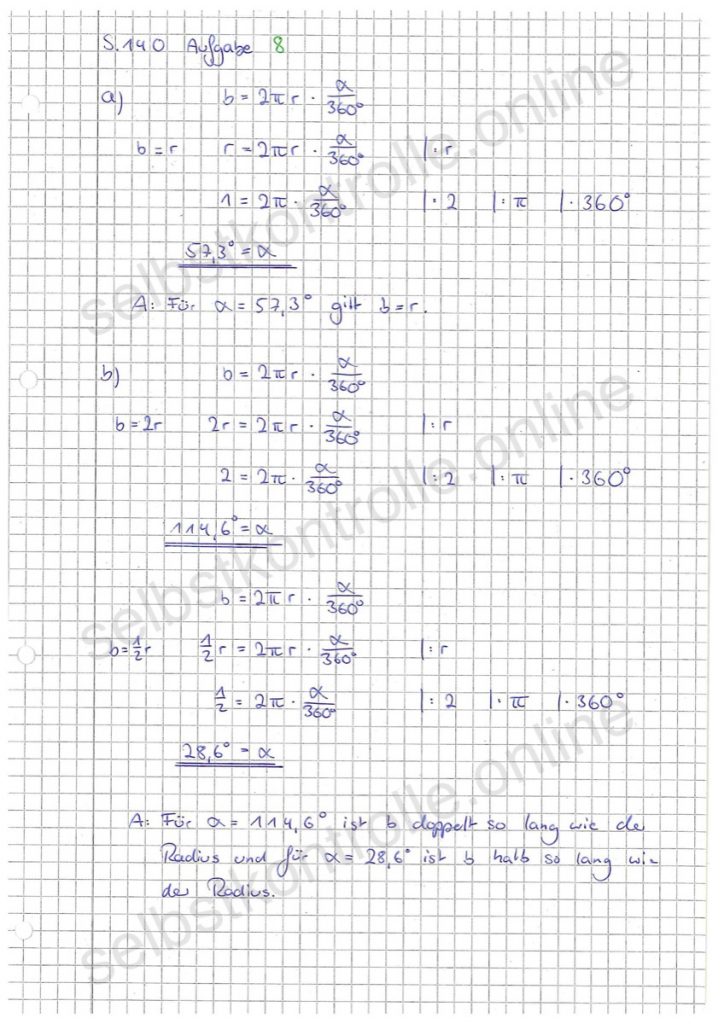 S. 140 Aufgabe 8
a) b = 2πr · α/360°
b = r r = 2πr · α/360° |:r
1 = 2π · α/360° |:2 |:π |· 360°
57,3° = α
A: Für α = 57,3° gilt b = r.
b) b = 2πr · α/360°
b = 2r 2r = 2πr · α/360° |:r
2 = 2π · α/360° |:2 |:π |· 360°
114,6° = α
b = 2πr · α/360°
b = 1/2 r 1/2 r = 2πr · α/360° |:r
1/2 = 2π · α/360° |:2 |:π |· 360°
28,6° = α
A: Für α = 114,6° ist b doppelt so lang wie der
Radius und für α = 28,6° ist b halb so lang wie
der Radius.
selbstkontrolle.online
selbstkontrolle.online
selbstkontrolle.online